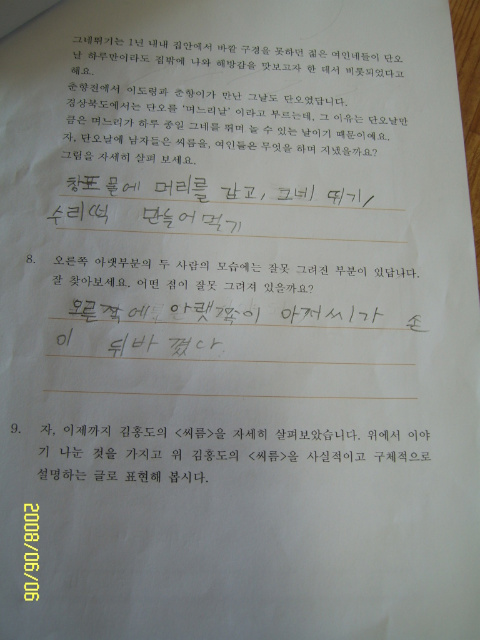 그네뛰기는 1년 내내 집안에서 바깥 구경을 못하던 젊은 여인네들이 단오
날 하루만이라도 집밖에 나와 해방감을 맛보고자 한 데서 비롯되었다고
해요.
춘향전에서 이도령과 춘향이가 만난 그날도 단오였답니다.
경상북도에서는 단오를 '며느리날' 이라고 부르는데, 그 이유는 단오날만
큼은 며느리가 하루 종일 그네를 뛰며 놀 수 있는 날이기 때문이에요.
자, 단오날에 남자들은 씨름을, 여인들은 무엇을 하며 지냈을까요?
그림을 자세히 살펴 보세요.
창포 물에 머리를 감고, 그네 뛰기,
수리떡 만들어 먹기
8. 오른쪽 아랫부분의 두 사람의 모습에는 잘못 그려진 부분이 있답니다.
잘 찾아보세요. 어떤 점이 잘못 그려져 있을까요?
오른쪽에 아랫쪽이 아저씨가 손
이 뒤바꼈다
9. 자, 이제까지 김홍도의 <씨름>을 자세히 살펴보았습니다. 위에서 이야
기 나눈 것을 가지고 위 김홍도의 <씨름>을 사실적이고 구체적으로
설명하는 글로 표현해 봅시다.
2008/06/06